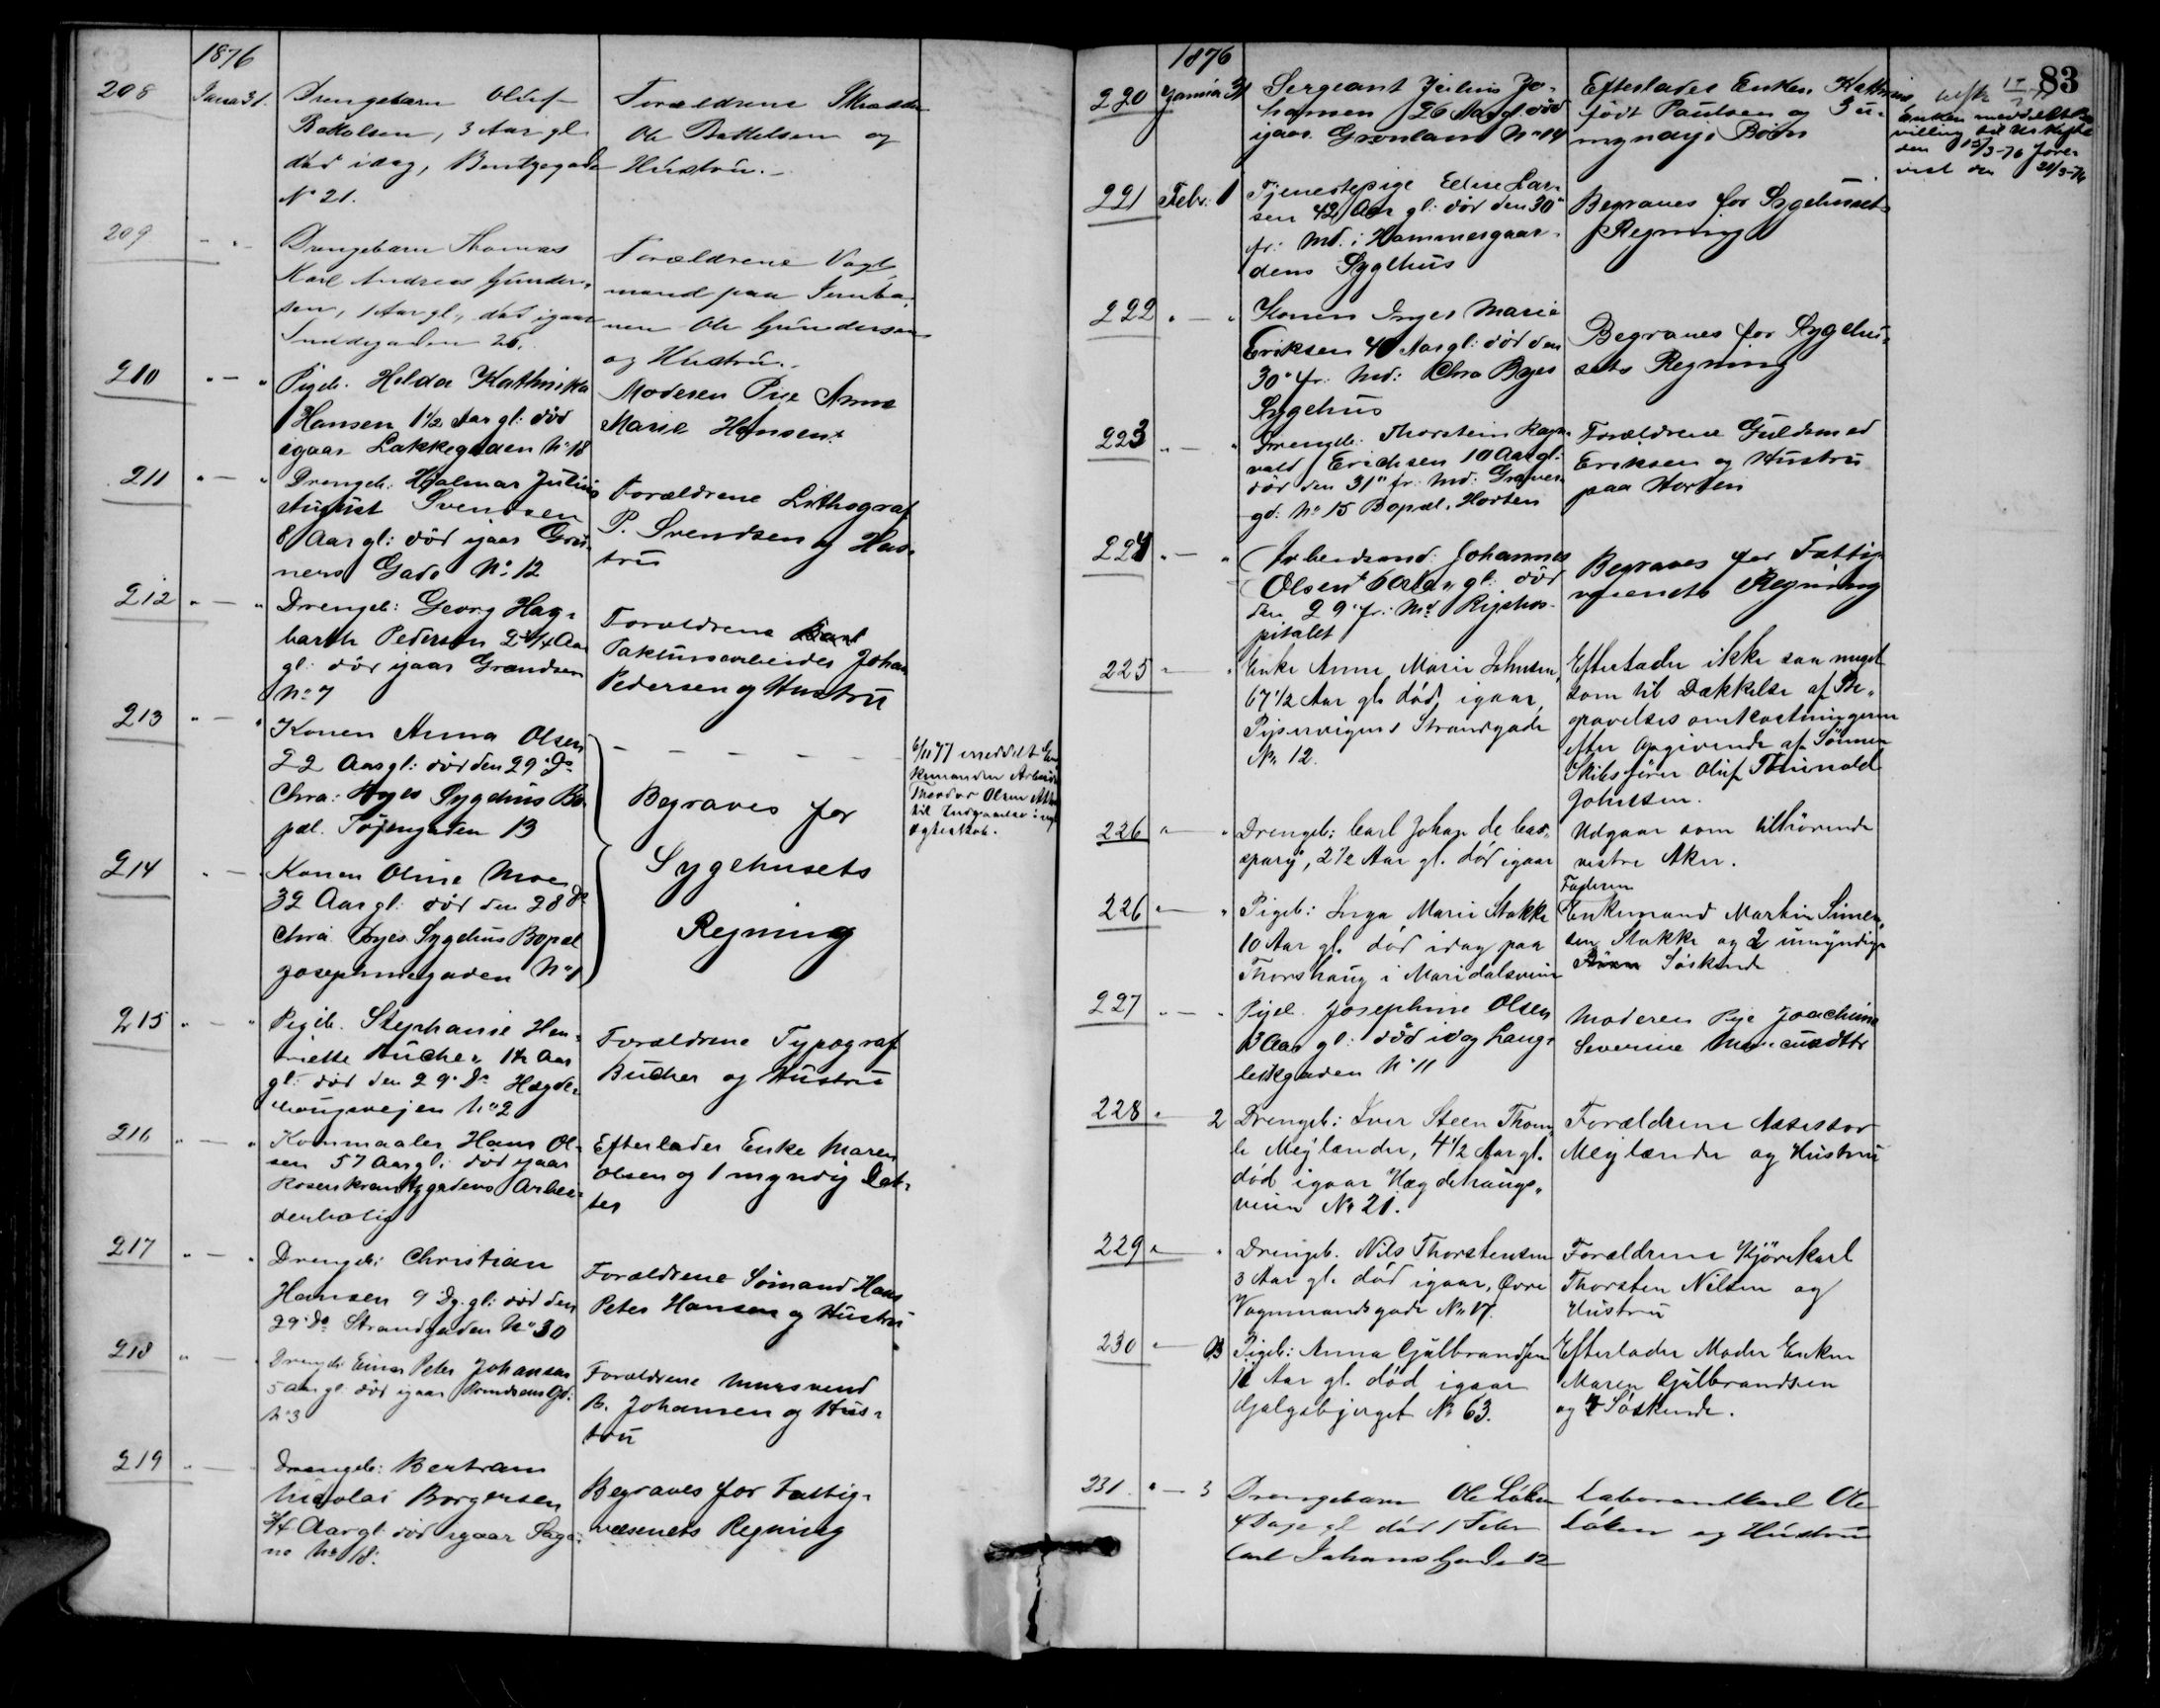 1876
208 Janua 31. Drengebarn Oluf
Bottolsen, 3 Aar gl.
død idag, Bentzegade
No 21.
Forældrene Skrædder
Ole Bottelsen og
Hustru.
209 " - " Drengebarn Thomas
Karl Andreas Gunder-
sen, 1 Aar gl., død igaar
26.
Forældrene Vogt-
mand paa Jernba-
nen Ole Gundersen
og Hustru.
210 " - " Pigeb. Helda Kathrikka
Hansen 1 1/2 Aar gl: død
igaar Lakkegaden No 18
Moderen Pige Anna
Marie Hansen
211 " - " Drengeb. Hjalmar Julius
August Svendsen
8 Aar gl: død igaar Grü-
ners Gade No: 12
Forældrene Lithograf
P. Svendsen og Hus-
tru
212 " - " Drengeb: Georg Hag-
barth Pedersen 2 3/4 Aar
gl: død igaar Grændsen
No 7
Forældrene
Johan
Pedersen og Hustru
213 " - " Konen Anna Olsen
22 Aar gl: død den 29' Ds
Chra: Byes Sygehus Bo-
pæl. Tøjengaden 13
Begraves for
Sygehusets
Regning
6/11 77 meddelt En-
kemanden Arbeider
Theodor Olsen Attest
til Indgaaelse i nyt
Ægteskab.
214 " - Konen Oline Moe
32 Aar gl: død den 28 Ds
Chra Byes Sygehus Bopæl
Josephinegaden No 1
215 " - " Pigeb. Stephanie Hen-
riette Bucher 1 1/2 Aar
gl: død den 29' Ds Hægde-
hougsvejen No 2
Forældrene Typograf
Bucher og Hustru
216 " - " Kornmaaler Hans Ol-
sen 57 Aar gl: død igaar
Rosenkrantzgadens Arbei-
derbolig
Efterlader Enke Maren
Olsen og 1 myndig Dat-
ter
217 " - " Drengeb: Christian
Hansen 9 Dg. gl: død den
29' Ds Strandgaden No 30
Forældrene Sømand Hans
Peter Hansen og Hustru
218 " - " Drengeb: Einar Peter Johansen
5 Aar gl: død igaar Trondsens Gd:
No 3
Forældrene Mursvend
B. Johansen og Hus-
tru
219 " - Drengeb: Bertram
Nicolai Borgersen
3/4 Aar gl: død igaar Sage-
ne No 18.
Begraves for Fattig-
væsenets Regning
83
1876
220 Januar 31 Sergeant Julius Jo-
hansen 26 Aar gl død
igaar. Grønland No 14
Efterlader Enken Kathrine
født Paulsen og 3 u-
myndige Børn
Enken meddelt Be-
villing til Uskifte
den 15/3-76 Fore-
vist den 21/3-76
221 Febr: 1 Tjenestepige Elise Lar-
sen 42 Aar gl: død den 30'
fr: Md. i Hammergaar-
dens Sygehus
Begraves for Sygehusets
Regning
222 " - " Konen Inger Marie
Eriksen 40 Aar gl: død den
30' fr: Md: Chra Byes
Sygehus
Begraves for Sygehu-
sets Regning
223 " - " Drengeb: Thorstein Ragn-
vald Erichsen 10 Aar gl:
død den 31" fr: Md: Graven-
gd: No 15 Bopæl. Horten
Forældrene Guldsmed
Eriksen og Hustru
paa Horten
224 " - " Arbeidsmd. Johannes
Olsen 60 Aar gl: død
den 29' fr: Md Rigshos-
pitalet
Begraves for Fattig-
væsenets Regning
225 " - " Enke Anne Marie Johnsen,
67 1/2 Aar gl. død, igaar,
Pipervigens Strandgade
No 12.
Efterlader ikke saa meget
som til Dækkelse af Be-
gravelsesomkostningerne
efter Opgivende af Sønnen
Skibsfører Oluf Thorvald
Johnsen.
226 " - " Drengeb: Carl Johan de Cas-
spary, 2 1/2 Aar gl. død igaar
Udgaar som tilhørende
vestre Aker.
226 " - " Pigeb: Inga Marie Stokke
10 Aar gl. død idag paa
Thorshaug i Maridalsveien
Faderen
Enkemand Martin Simen-
sen Stokke og 2 umyndige
Børn Søskende
227 " - " Pigeb. Josephine Olsen
3 Aar gl: død idag Lang-
leikgaden No 11
Moderen Pige Joachime
Severine
228 " - 2 Drengeb: Iver Steen Thom-
le Mejlænder, 4 1/2 Aar gl.
død igaar Hægdehaugs-
veien No 21.
Forældrene Assessor
Mejlænder og Hustru
229 " - " Drengeb. Nils Thorstensen
3 Aar gl. død igaar, Øvre
Vognmandsgade No 17.
Forældrene Kjørekarl
Thorsten Nilsen og
Hustru
230 " - 3 Pigeb: Anna Gulbrandsen
11 Aar gl. død igaar
Galgebjerget No 63.
Efterlader Moder Enken
Maren Gulbrandsen
og 4 Søskende.
231. " - 3 Drengebarn Ole Løken
4 Dage gl død 1 Febr
Carl Johans Gade 12
Laborantkarl Ole
Løken og Hustru